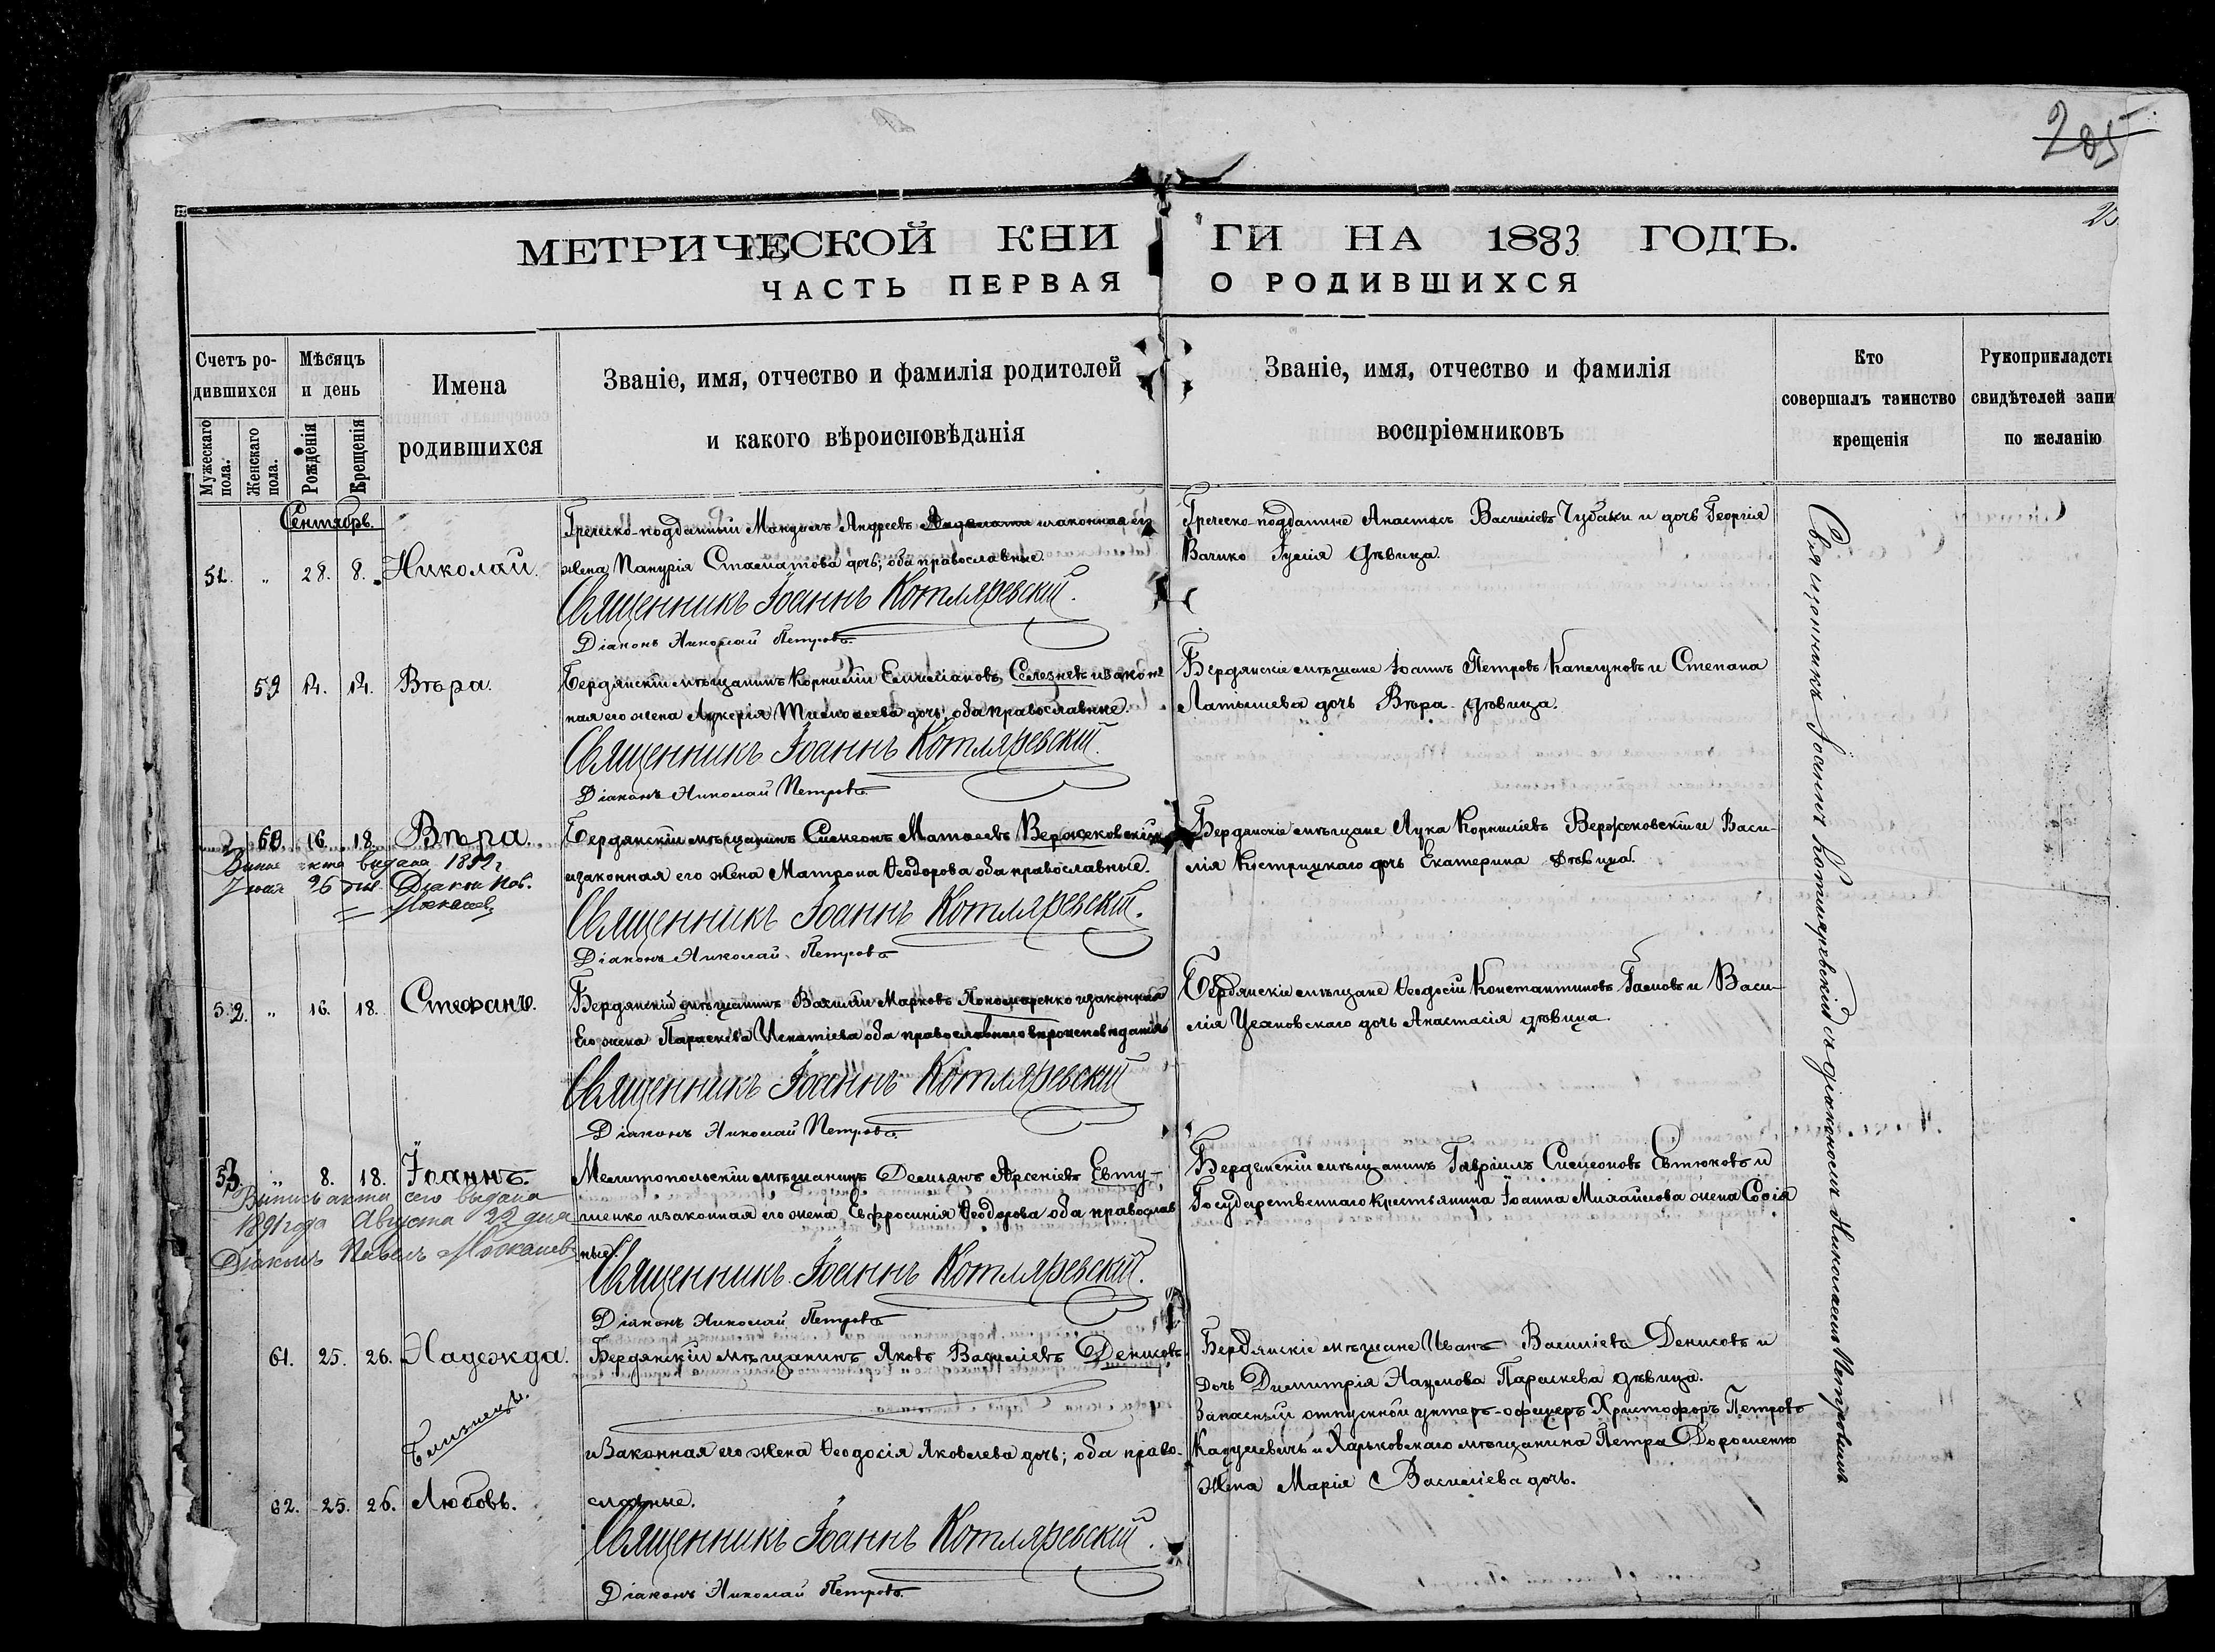 205
МЕТРИЧЕСКОЙ КНИГИ НА 1883 ГОДЪ.
ЧАСТЬ ПЕРВАЯ О РОДИВШИХСЯ
Счетъ родившихся
Мужескаго пола.
Женскаго пола.
Мѣсяцъ и день
Рожденія
Крещенія
Имена родившихся
Званіе, имя, отчество и фамилія родителей
и какого вѣроисповѣданія
Званіе, имя, отчество и фамилія
воспріемниковъ
Кто
совершалъ таинство
крещенія
Рукоприкладст
свидѣтелей запи
по желанію
Сентябрь.
51. „ 28. 8. Николай.
Греческо-подданный Мануилъ Андреевъ изаконная его
жена Панурія Стаматова дочь; оба православные.
Священникъ Іоаннъ Котляревскій.
Діаконъ Николай Петровъ
Греческо-подданные Анастасъ Василіевъ Чубаки и дочь Георгія
Вачико Гулія дѣвица.
59 14. 14. Вѣра.
Бердянскій мѣщанинъ Корнилій Емиліановъ Селезневъ изакон
ная его жена Лукерія Тимоѳеева дочь; оба православные.
Священникъ Іоаннъ Котляревскій.
Діаконъ Николай Петровъ
Бердянскіе мѣщане Іоаннъ Петровъ Капелуновъ и Степана
Латышева дочь Вѣра дѣвица.
60. 16. 18. Вѣра.
акта видана 1892 г
26 дня. Діакон Пав.
Бердянскій мѣщанинъ Симеонъ Матѳеевъ Вержековскій
изаконная его жена Матрона Ѳеодорова оба православные.
Священникъ Іоаннъ Котляревскій.
Діаконъ Николай Петровъ
Бердянскіе мѣщане Лука Корниліевъ Вержековскій и Васи-
лія Кистрицкаго дочь Екатерина дѣвица.
52. „ 16. 18. Стефанъ.
Бердянскій мѣщанинъ Василій Марковъ Пономаренко изаконная
Его жена Параскева Игнатіева оба православнаго вѣроисповѣданія
Священникъ Іоаннъ Котляревскій
Діаконъ Николай Петровъ
Бердянскіе мѣщане Ѳеодосій Константиновъ Гамовъ и Васи-
лія Цехановскаго дочь Анастасія дѣвица.
53. „ 8. 18. Іоаннъ.
Выпись акта сего выдана
1891 года Августа 22 дня
Діаконъ Павелъ
Мелитопольскій мѣщанинъ Демьянъ Арсеніевъ Евту-
шенко изаконная его жена Евфросинія Ѳеодорова оба православ
ные.
Священникъ Іоаннъ Котляревскій.
Діаконъ Николай Петровъ
Бердянскій мѣщанинъ Гавріилъ Симеоновъ Евтюковъ и
Государственнаго крестьянина Іоанна Михайлова жена Софія
61. 25. 26. Надежда.
Близнецы.
62. 25. 26. Любовь.
Бердянскій мѣщанинъ Яковъ Василіевъ Денисовъ
изаконная его жена Ѳеодосія Яковлева дочь; оба право-
славные.
Священникъ Іоаннъ Котляревскій.
Діаконъ Николай Петровъ
Бердянскіе мѣщане Иванъ Василіевъ Денисовъ и
дочь Димитрія Наумова Параскева дѣвица.
Запасный отпускной унтеръ-офицеръ Христофоръ Петровъ
и Харьковскаго мѣщанина Петра Дорошенко
жена Марія Василіева дочь.
Священникъ Іоаннъ Котляревскій съ діакономъ Николаемъ Петровымъ